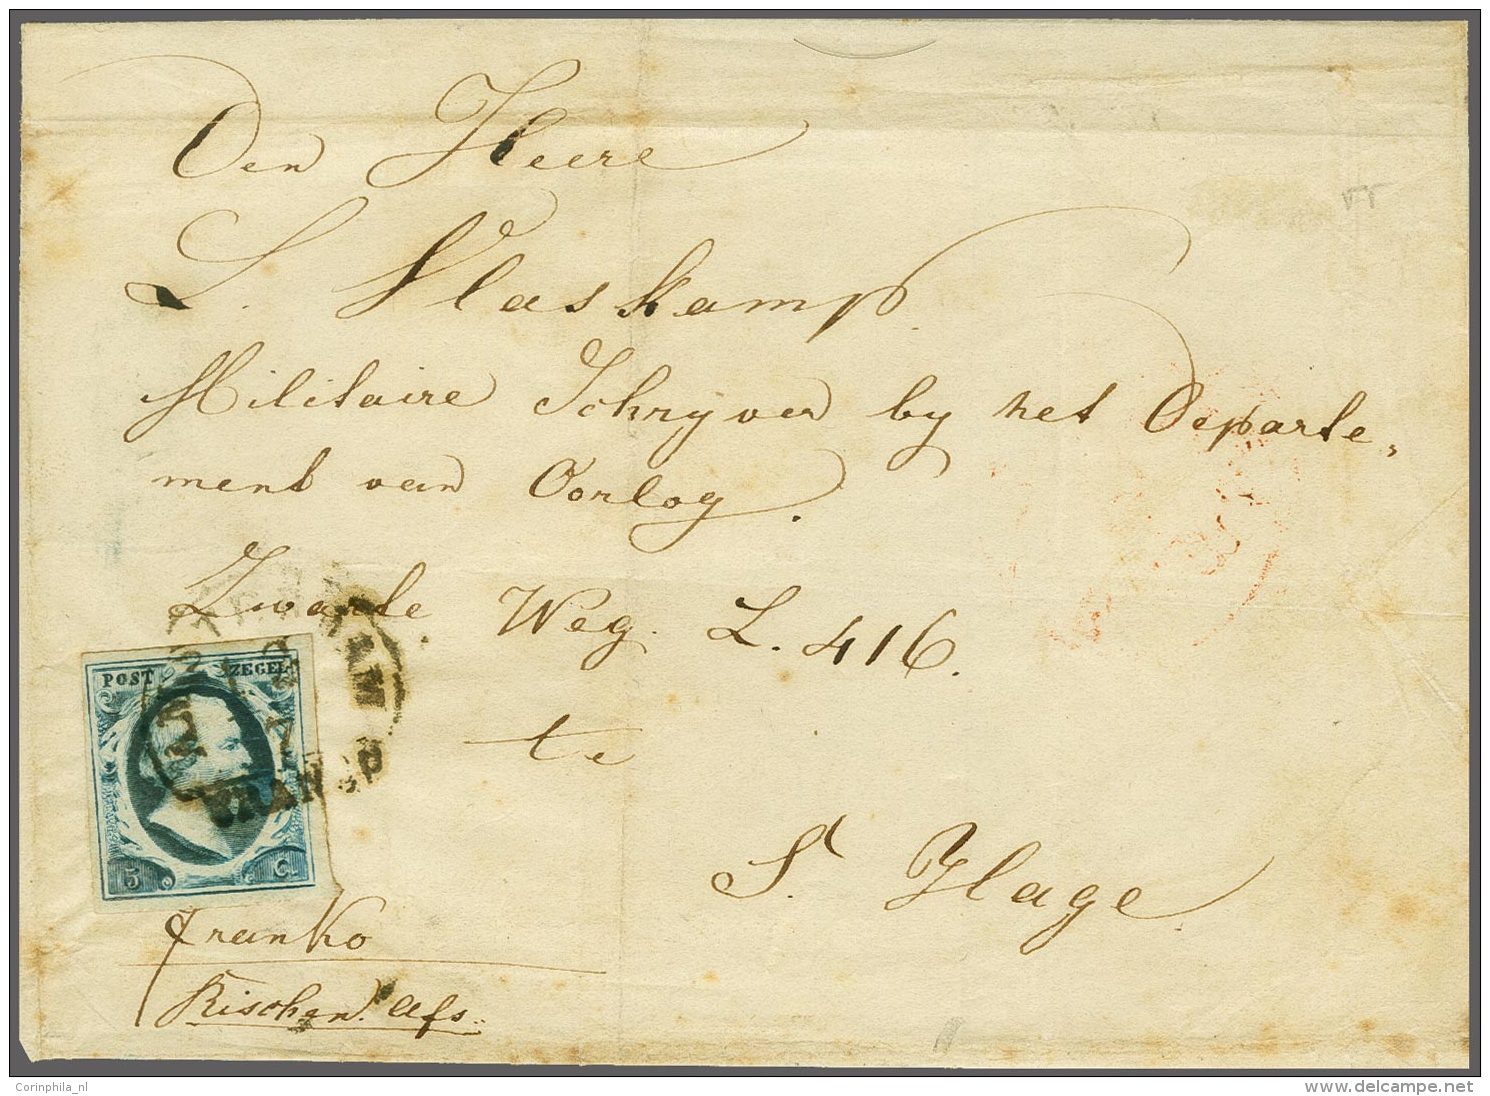 Den Heere
L. Vlaskamp
Militaire Schryver by het Departe„
ment van Oorlog.
Zwarte Weg. L. 416.
te
S. Hage
POST ZEGEL
FRANCO
5 Ct
franko
Corinphila_nl
www.delcampe.net